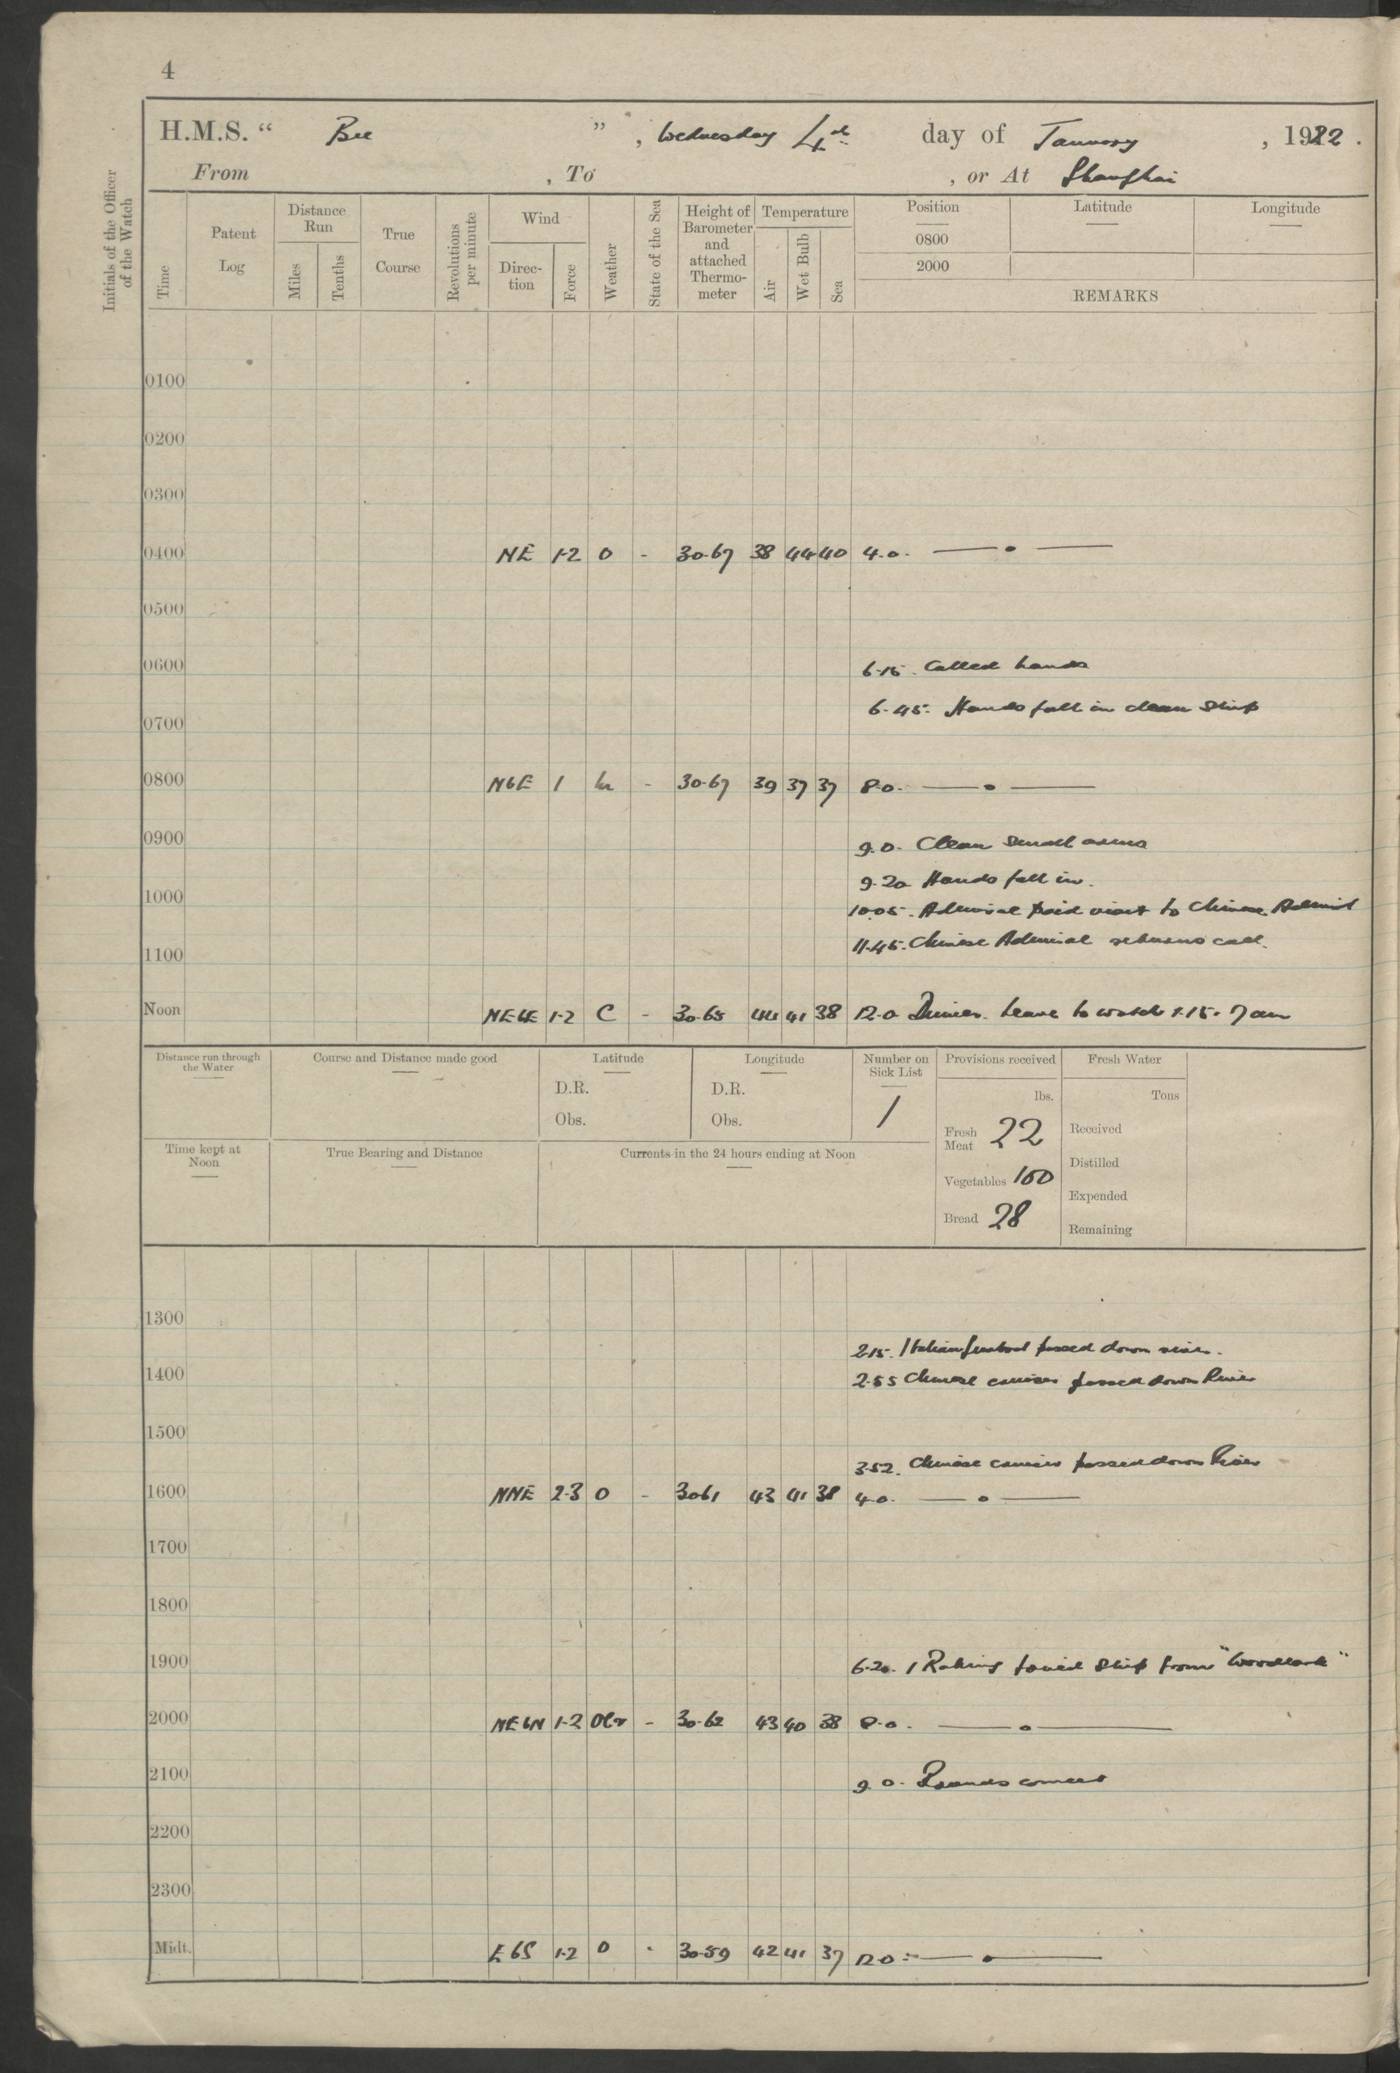 4
H.M.S. “ Bee ” , Wednesday 4th day of January , 1922 .
From , To , or At Shanghai
Initials of the Officer of the Watch
Time
Patent Log
Distance Run
Miles
Tenths
True Course
Revolutions per minute
Wind
Direc-tion
Force
Weather
State of the Sea
Height of Barometer and attached Thermo-meter
Temperature
Air
Wet Bulb
Sea
Position
0800
2000
Latitude
Longitude
REMARKS
0100
0200
0300
0400 NE 1-2 O - 30.67 38 44 40 4.0.
0500
0600 6.15. Called hands
6.45. Hands fall in clean Ship
0700
0800 NbE 1 - 30.67 39 37 37 8.0.
0900 9.0. Clean Small arms
9.20 Hands fall in.
1000 10.05. Admiral paid visit to Chinese Admiral
11.45. Chinese Admiral returns call.
1100
Noon NEbE 1-2 C - 30.65 44 41 38 12.0 Dinner. Leave to watch 1.15. 7am
Distance run through the Water
Course and Distance made good
Latitude
D.R.
Obs.
Longitude
D.R.
Obs.
Number on Sick List
1
Provisions received
lbs.
Fresh Meat 22
Vegetables 100
Bread 28
Fresh Water
Tons
Received
Distilled
Expended
Remaining
Time kept at Noon
True Bearing and Distance
Currents in the 24 hours ending at Noon
1300
2.15. Italian gunboat passed down river.
1400 2.55 Chinese cruiser passed down River
1500
3.52. Chinese cruiser passed down River
1600 NNE 2-3 O - 30.61 43 41 38 4.0.
1700
1800
1900 6.20. 1 Rating joined Ship from "Woodlark"
2000 NEbN 1-2 Ocr - 30.62 43 40 38 8.0.
2100 9.0. Rounds correct
2200
2300
Midt. EbS 1-2 O - 30.59 42 41 37 12.0